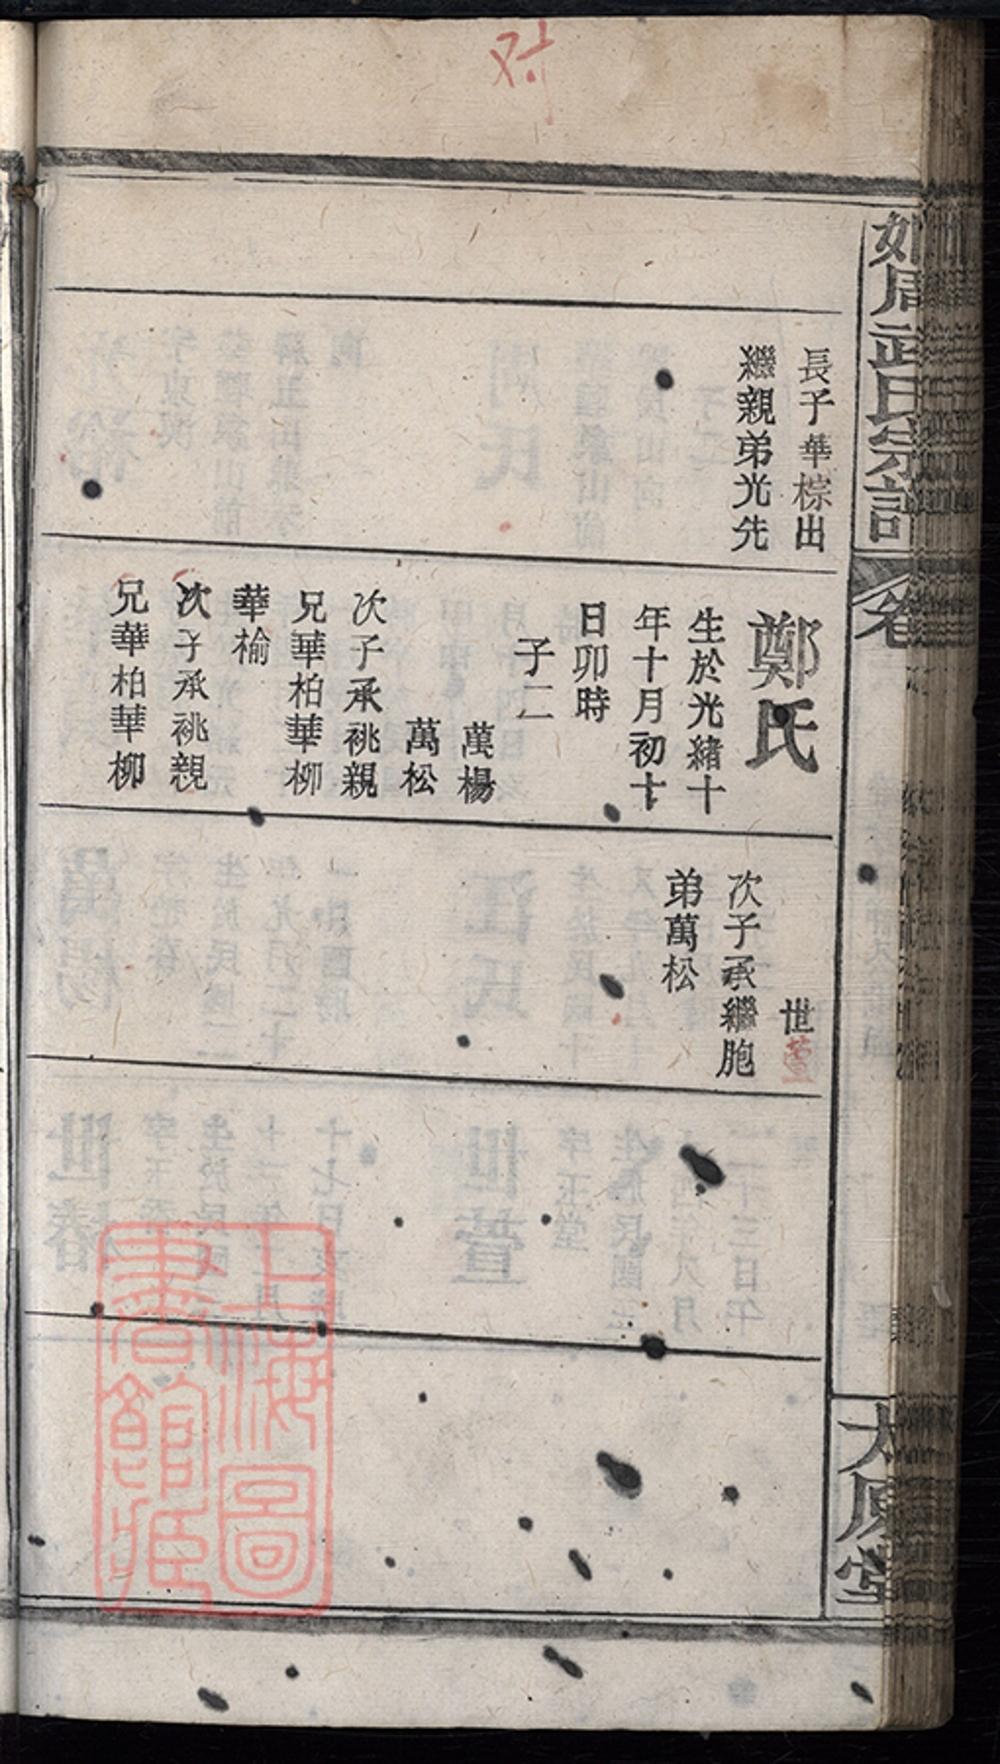 对
如周武氏宗譜
卷
太原堂
長子華棕出
繼親弟光先
鄭氏
生於光緒十
年十月初十
日卯時
子二
萬楊
萬松
次子承祧親
兄華柏華柳
華榆
次子承祧親
兄華柏華柳
世萱
次子承繼胞
弟萬松
上海圖
書館藏